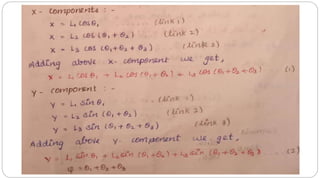 x - components : -
x = L₁ cosθ₁ (link 1)
x = L₂ cos (θ₁ + θ₂) (link 2)
x = L₃ cos (θ₁+θ₂+θ₃) (link 3)
Adding above x- component we get,
x = L₁ cosθ₁ + L₂ cos (θ₁+θ₂) + L₃ cos (θ₁+θ₂+θ₃) (1)
y - component : -
y = L₁ sinθ₁ (link 1)
y = L₂ sin (θ₁ + θ₂) (link 2)
y = L₃ sin (θ₁ + θ₂ + θ₃) (link 3)
Adding above y- component we get,
y = L₁ sinθ₁ + L₂ sin (θ₁ + θ₂) + L₃ sin (θ₁ + θ₂ + θ₃) (2)
φ = θ₁ + θ₂ + θ₃